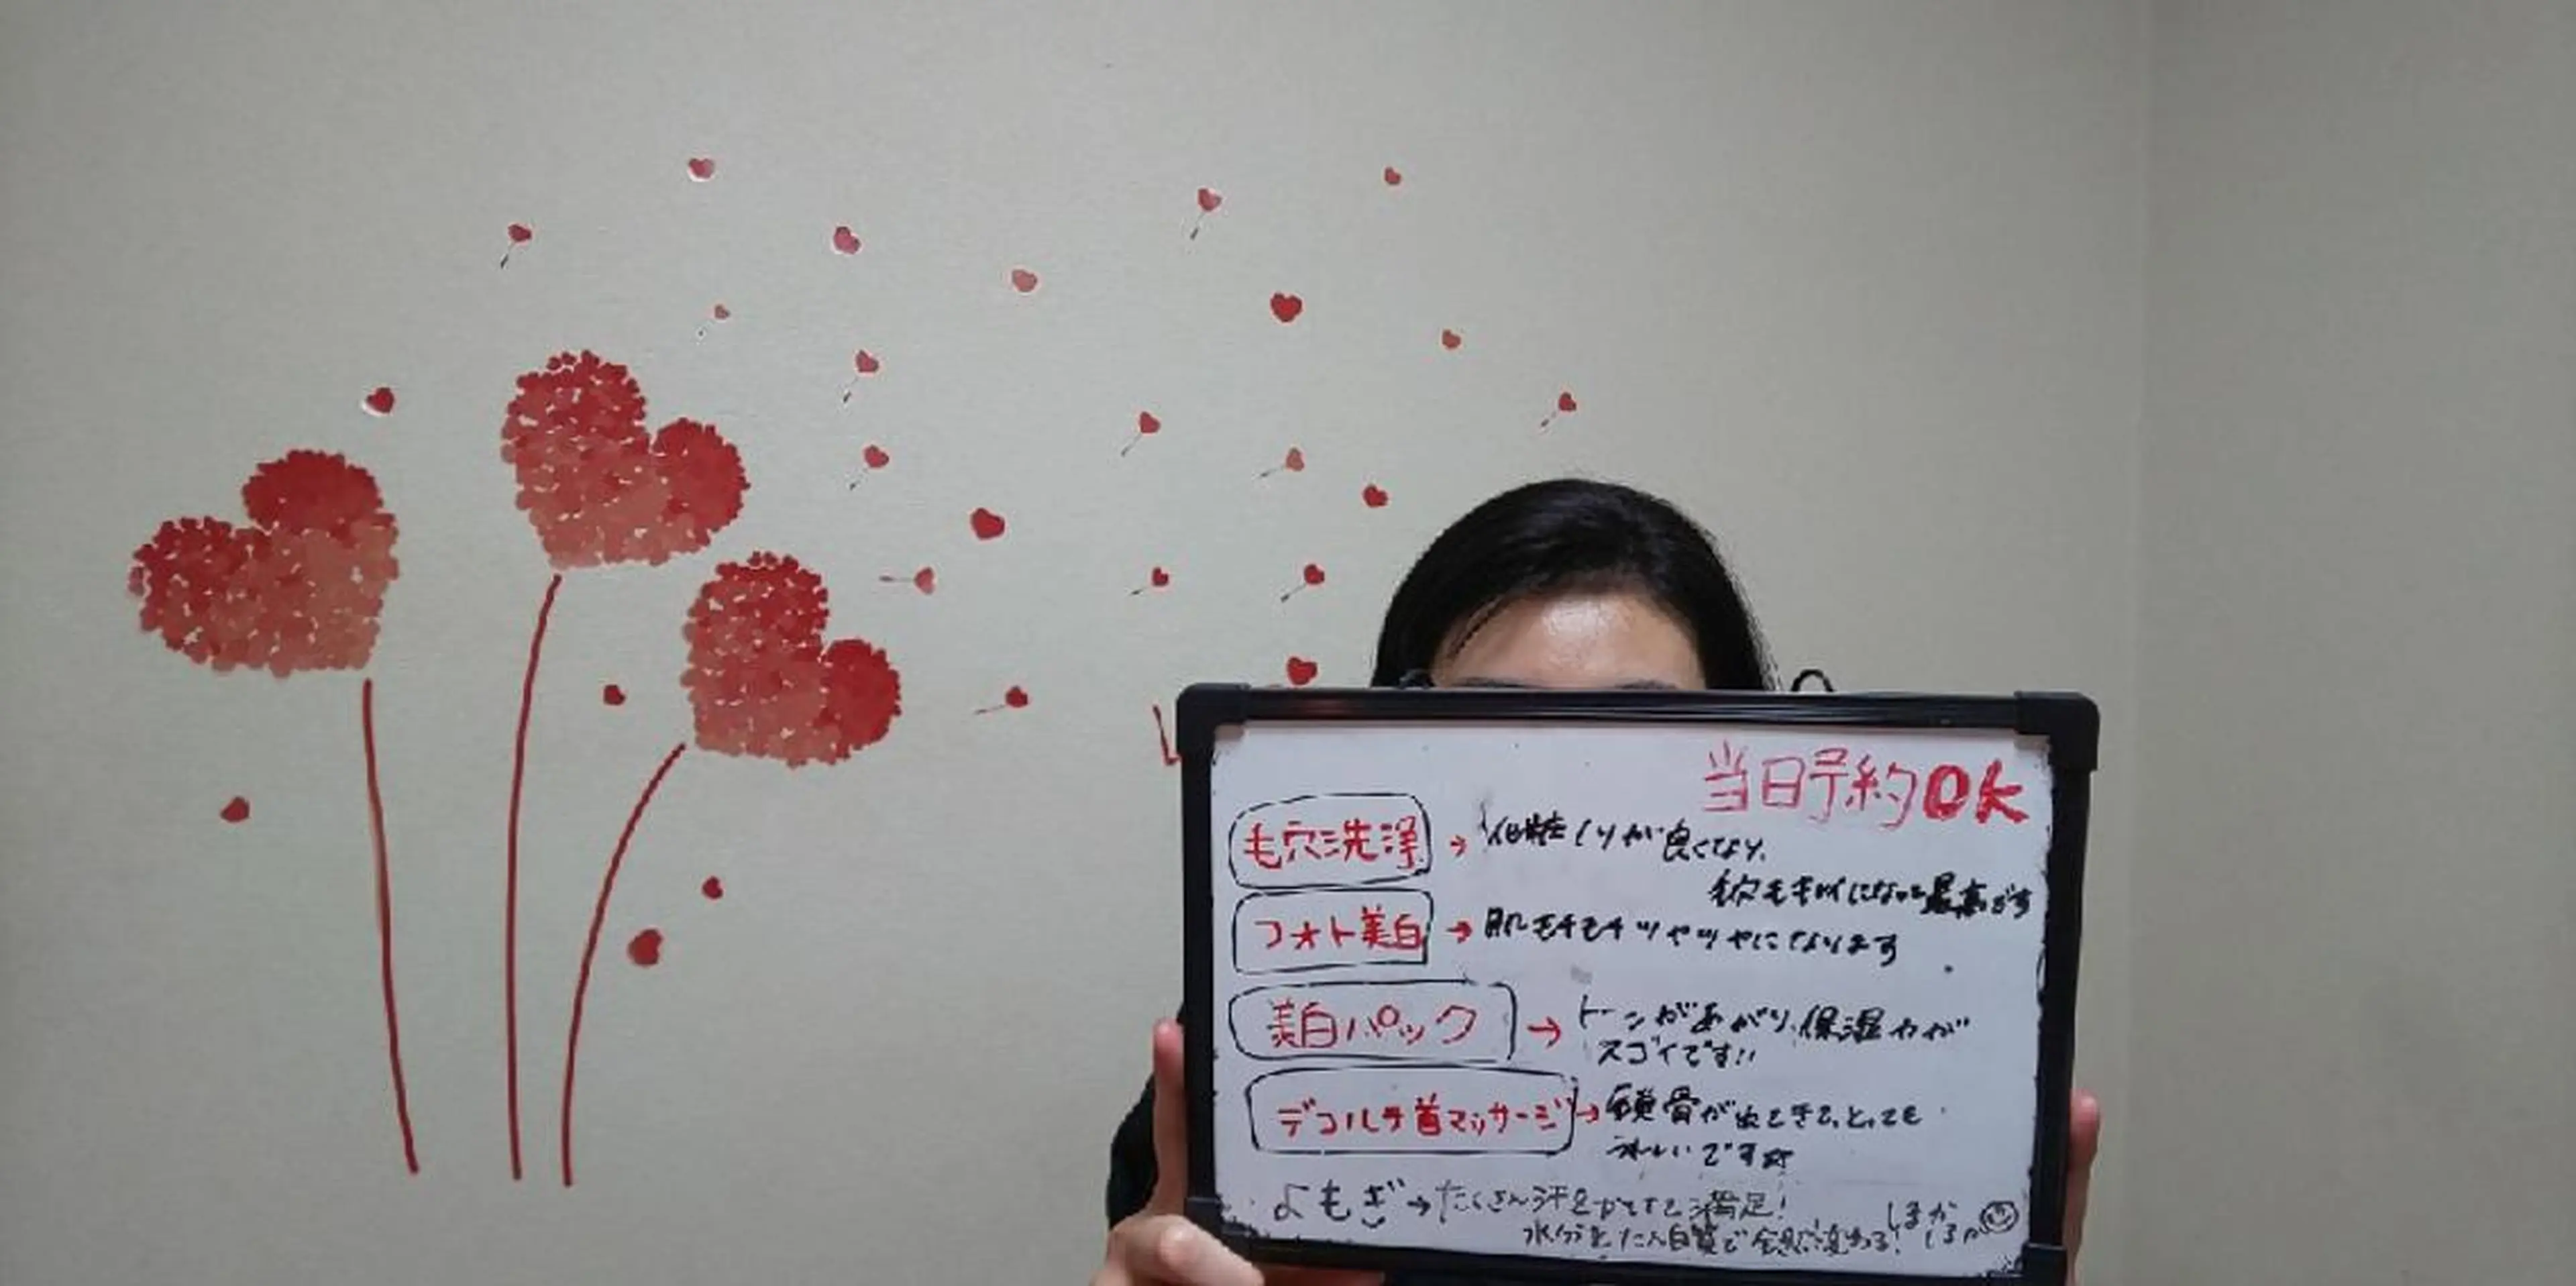 当日予約OK
毛穴洗浄 → 化粧ノリが良くなり、
毛穴もキレイになって最高です
フォト美白 → 肌モチモチツヤツヤになります
美白パック → トーンがあがり、保湿力が
スゴイです!!
デコルテ首マッサージ → 鎖骨が出てきて、とっても
うれしいです
よもぎ → たくさん汗をかけて満足!
水分を